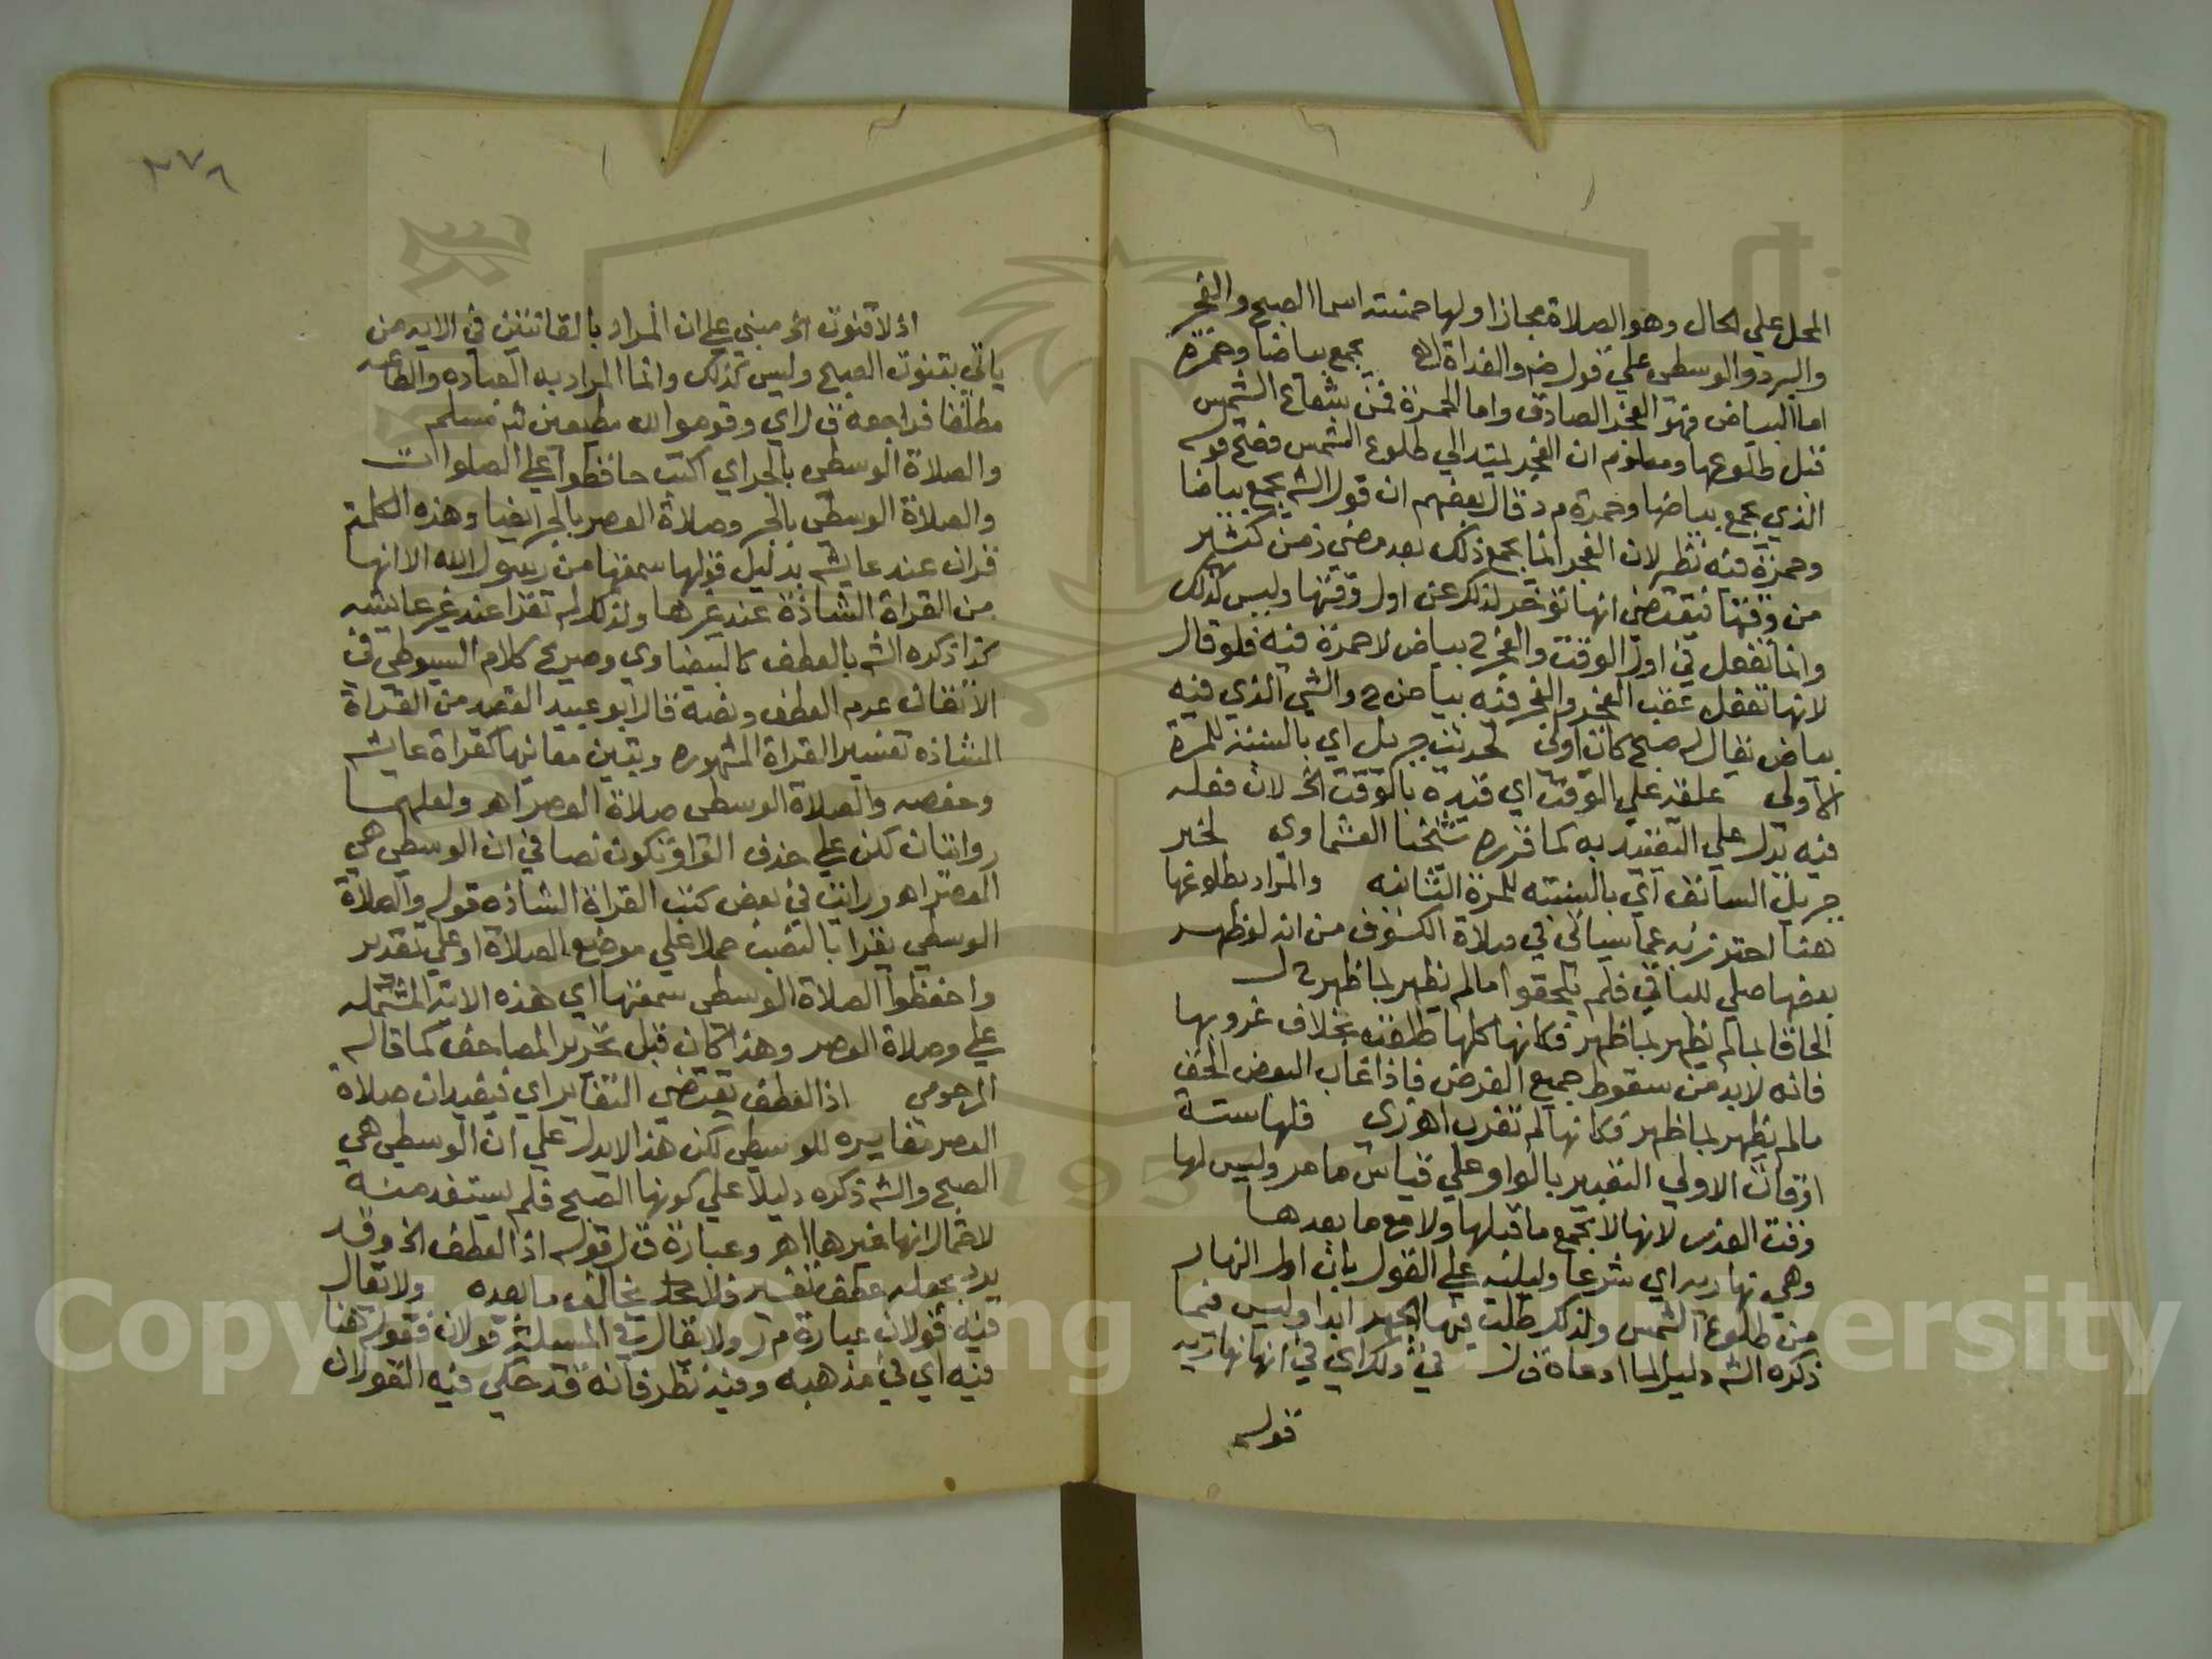 المحل علي الحال وهو الصلاة مجازا ولها خمسة اسما الصبح والفجر
والبرد والوسطي علي قول ض والغداة اه يجمع بياضا وحمرة
اما البياض فهو الفجر الصادق واما الحمرة فمن شعاع الشمس
قبل طلوعها ومعلوم ان الفجر يمتد الي طلوع الشمس فصح قوله
الذي يجمع بياضا وحمرة م د قال بعضهم ان قول الش يجمع بياضا
وحمرة فيه نظر لان الفجر انما يجمع ذلك بعد مضي زمن كثير
من وقتها فيقتضي انها تؤخر لذلك عن اول وقتها وليس كذلك
وانما تفعل في اول الوقت والفجر ح بياض لا حمرة فيه فلو قال
لانها تفعل عقب الفجر والفجر فيه بياض ح والشي الذي فيه
بياض يقال له صبح كان اولي لحديث جبريل اي بالنسبة للمرة
الاولي علقه علي الوقت اي قيده بالوقت الخ لان فعله
فيه يدل علي التقييد به كما قرره شيخنا العشماوي لخبر
جبريل السابق اي بالنسبة للمرة الثانية والمراد بطلوعها
هنا احترز به عما سياتي في صلاة الكسوف من انه لو ظهر
بعضها صلي للباقي فلم يلحقوا ما لم يظهر بما ظهر ح ل
الحاقا لما لم يظهر بما ظهر فكانها كلها طلعت بخلاف غروبها
فانه لابد من سقوط جميع القرص فاذا غاب البعض الحق
ما لم يظهر بما ظهر فكانها لم تغرب اهوزي فلها ستة
اوقات الاولي التعبير بالواو علي قياس ما مر وليس لها
وقت العذر لانها لا تجمع ما قبلها ولا مع ما بعدها
وهي نهارية اي شرعا وليلية علي القول بان اول النهار
من طلوع الشمس ولذلك طلت فيها الجهر ابدا وليس فيما
ذكره الش دليل لما ادعاه ق ل في ذلك اي في انها نهارية
قوله
٣٧٨
اذ لا قنوت الخ مبني علي ان المراد بالقانتين في الاية من
ياتي بقنوت الصبح وليس كذلك وانما المراد به العبادة والطاعة
مطلقا فراجعه ق ل اي وقوموا لله مطيعين لله مسلم
والصلاة الوسطي بالجر اي اكتب حافظوا علي الصلوات
والصلاة الوسطي بالجر وصلاة العصر بالجر ايضا وهذه الكلمة
قران عند عايشة بدليل قولها سمعتها من رسول الله الا انها
من القراة الشاذة عند غيرها ولذلك لم تقرا عند غير عايشة
كذا ذكره الش بالعطف كالبيضاوي وصريح كلام السيوطي في
الاتقان عدم العطف ونصه قال ابو عبيد القصد من القراة
الشاذة تفسير القراة المشهورة وتبين معانيها كقراة عايشة
وحفصه والصلاة الوسطي صلاة العصر اهو ولعلهما
روايتان لكن علي حذف الواو تكون نصا في ان الوسطي هي
العصر اهو ورايت في بعض كتب القراة الشاذة قوله والصلاة
الوسطي يقرا بالنصب حملا علي موضع الصلاة او علي تقدير
واحفظوا الصلاة الوسطي سمعتها اي هذه الاية المشتملة
علي وصلاة العصر وهذا كان قبل تحرير المصاحف كما قاله
المرحومي اذ العطف يقتضي التغاير اي فيفيد ان صلاة
العصر مغايرة للوسطي لكن هذا لا يدل علي ان الوسطي هي
الصبح والش ذكره دليلا علي كونها الصبح فلم يستفد منه
لاحتمال انها غيرها اهو وعبارة ق ل قوله اذ العطف الخ وقد
يرد بجعله عطف تفسير يخالف ما بعده ولا يقال
فيه قولان عبارة م ر ولا يقال في المسيلة قولان فقوله هنا
فيه اي في مذهبه وفيه نظر فانه قد حكي فيه القولان
Copyright © King Saud University